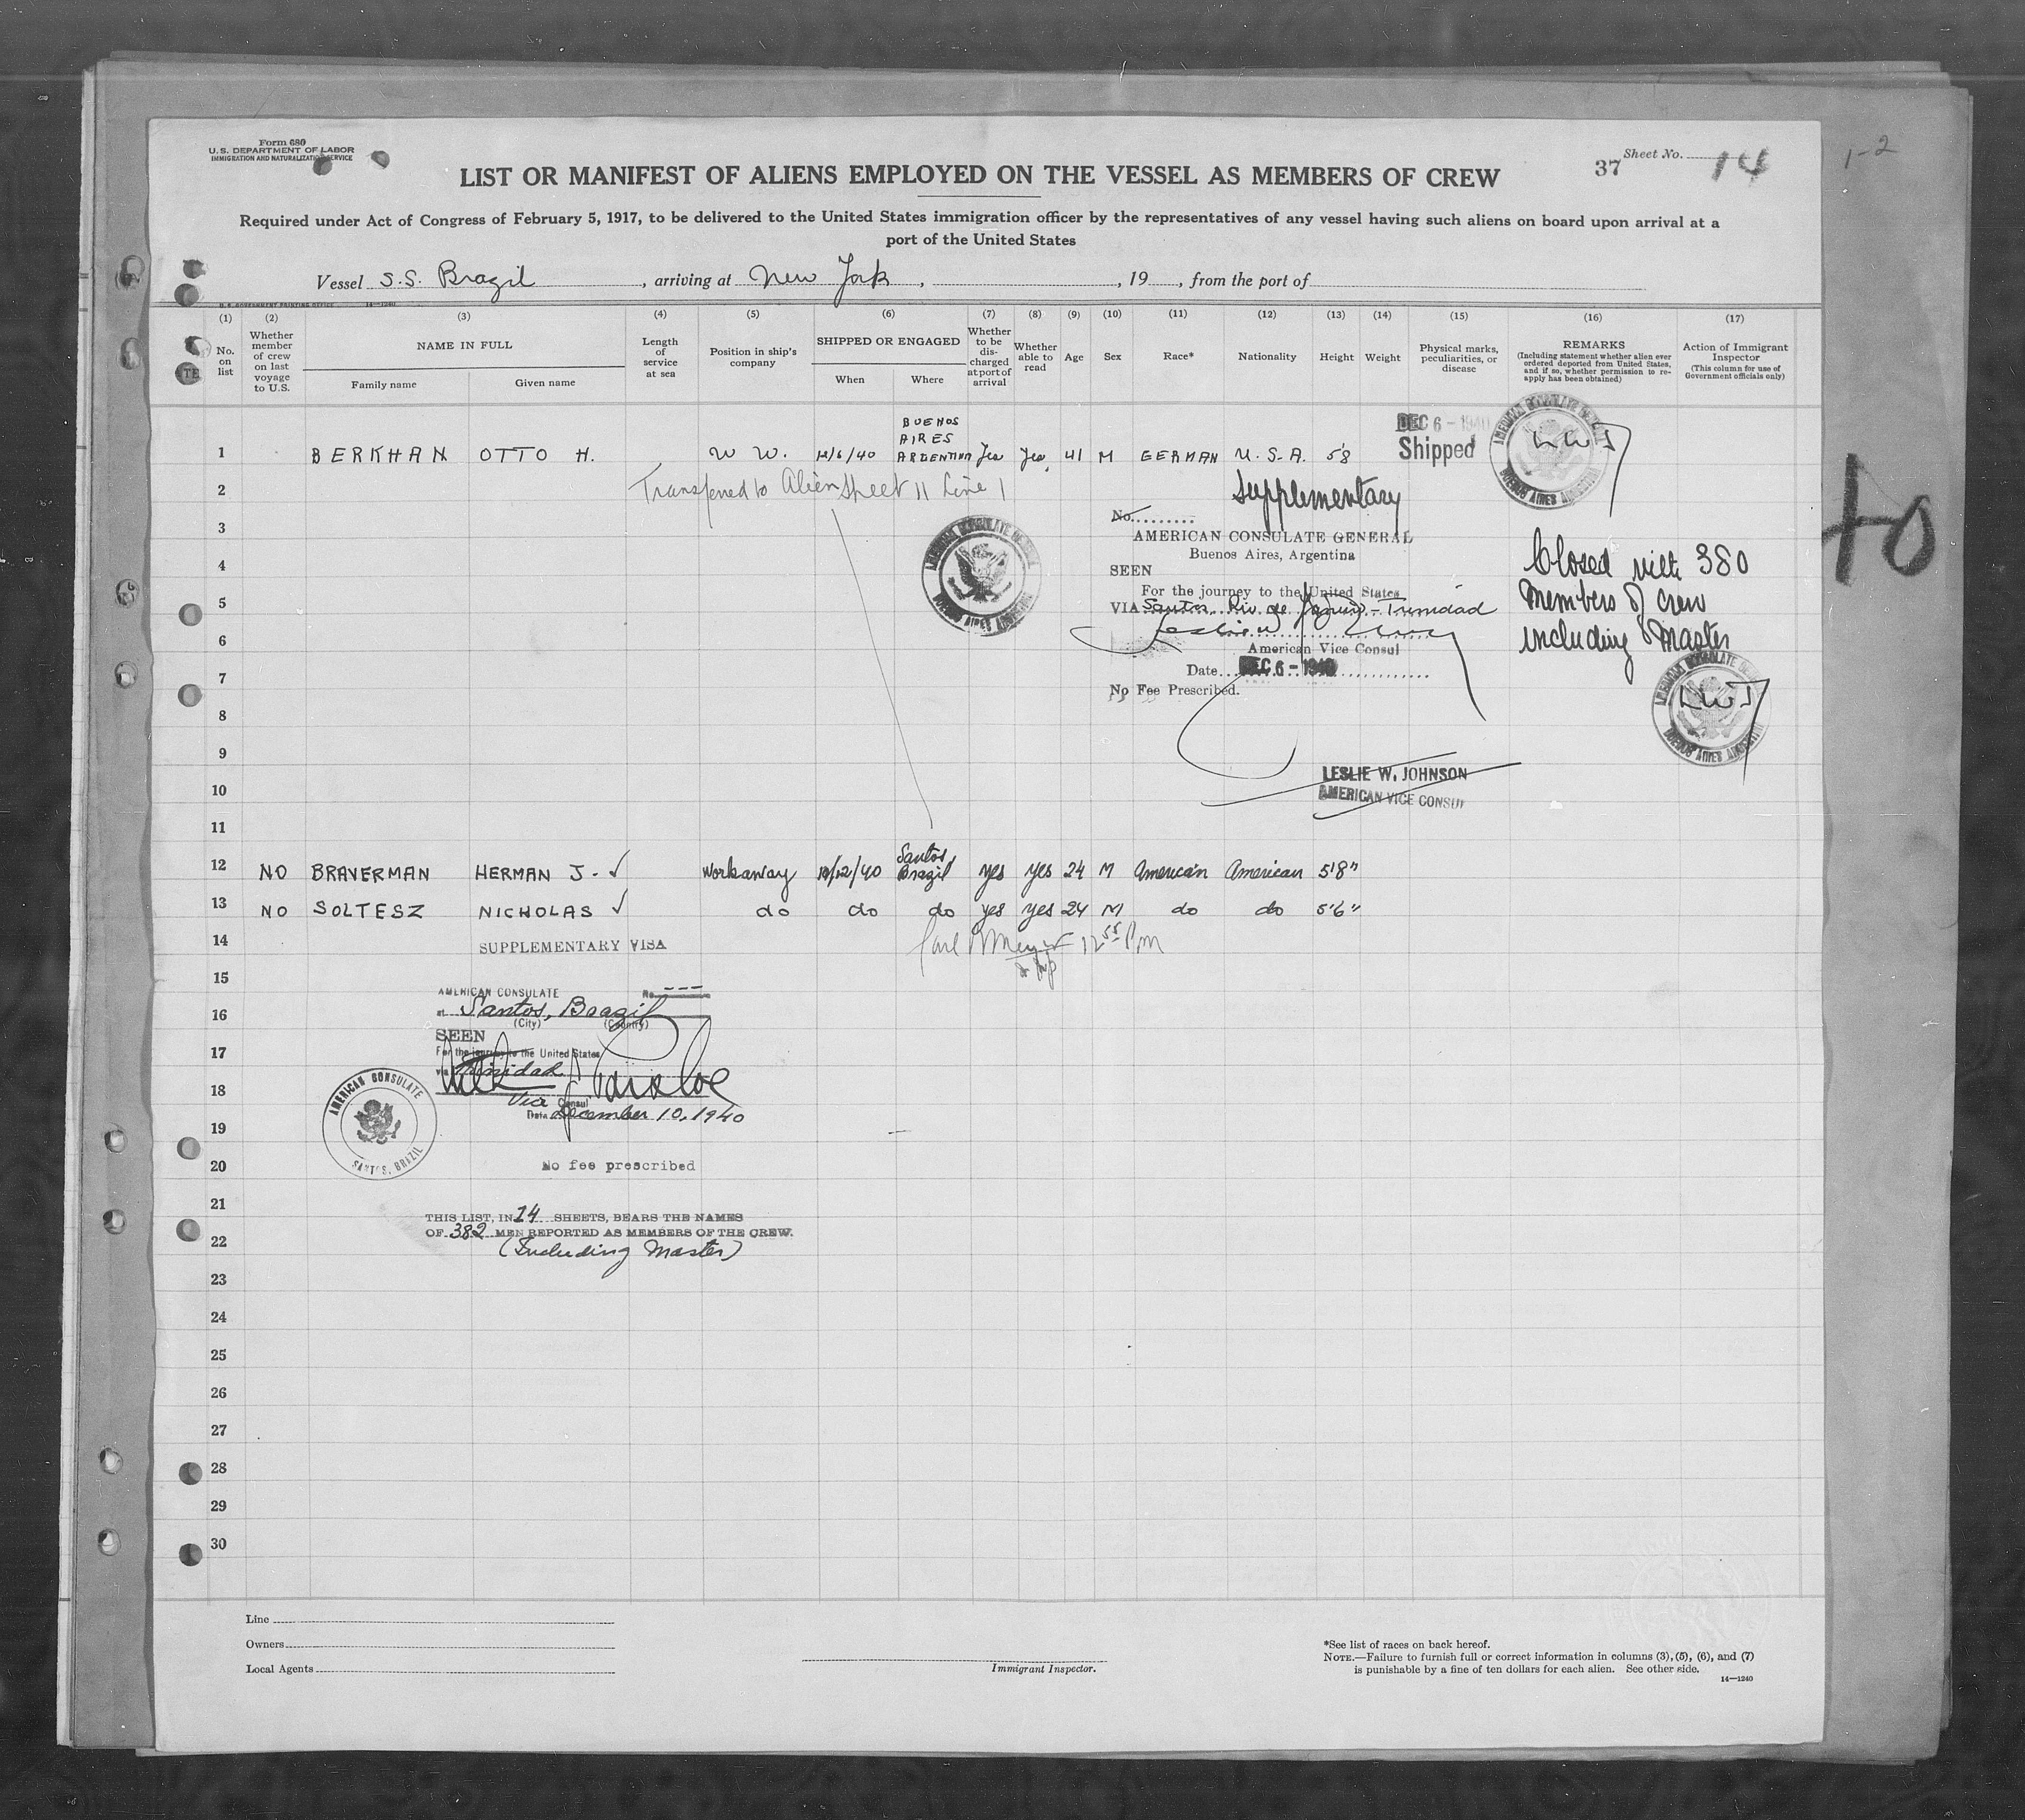 Form 680
U.S. DEPARTMENT OF LABOR
IMMIGRATION AND NATURALIZATION SERVICE
37 Sheet No. 14
1-2
LIST OR MANIFEST OF ALIENS EMPLOYED ON THE VESSEL AS MEMBERS OF CREW
Required under Act of Congress of February 5, 1917, to be delivered to the United States immigration officer by the representatives of any vessel having such aliens on board upon arrival at a
port of the United States
Vessel S.S. Brazil, arriving at New York, , 19 , from the port of
U. S. GOVERNMENT PRINTING OFFICE 14—1240
(1) (2) (3) (4) (5) (6) (7) (8) (9) (10) (11) (12) (13) (14) (15) (16) (17)
No. on list
Whether member of crew on last voyage to U.S.
NAME IN FULL
Family name
Given name
Length of service at sea
Position in ship's company
SHIPPED OR ENGAGED
When
Where
Whether to be discharged at port of arrival
Whether able to read
Age
Sex
Race*
Nationality
Height
Weight
Physical marks, peculiarities, or disease
REMARKS
(Including statement whether alien ever ordered deported from United States, and if so, whether permission to reapply has been obtained)
Action of Immigrant Inspector
(This column for use of Government officials only)
1 BERKHAN OTTO H. W W. 12/6/40 BUENOS AIRES ARGENTINA Yes Yes 41 M GERMAN U.S.A. 5'8
DEC 6 - 1940
Shipped
AMERICAN CONSULATE GENERAL
BUENOS AIRES ARGENTINA
LWJ
2 Transferred to Alien Sheet 11 Line 1
Supplementary
3 No.
AMERICAN CONSULATE GENERAL
Buenos Aires, Argentina
4 SEEN
For the journey to the United States
5 VIA Santos, Rio de Janeiro - Trinidad
6
American Vice Consul
7 Date DEC 6 - 1940
No Fee Prescribed.
AMERICAN CONSULATE GENERAL
BUENOS AIRES ARGENTINA
Closed with 380
members of crew
including Master
40
AMERICAN CONSULATE GENERAL
BUENOS AIRES ARGENTINA
LWJ
8
9
10 LESLIE W. JOHNSON
AMERICAN VICE CONSUL
11
12 NO BRAVERMAN HERMAN J. ✓ Workaway 10/12/40 Santos, Brazil yes yes 24 M American American 5'8"
13 NO SOLTESZ NICHOLAS ✓ do do do yes yes 24 M do do 5'6"
14 SUPPLEMENTARY VISA
12 55 Pm
15
AMERICAN CONSULATE No. ---
16 at Santos, Brazil
(City) (Country)
SEEN
17 For the journey to the United States
via Trinidad
18
Vice Consul
Date December 10, 1940
AMERICAN CONSULATE
SANTOS, BRAZIL
19
20 No fee prescribed
21 THIS LIST, IN 14 SHEETS, BEARS THE NAMES
22 OF 382 MEN REPORTED AS MEMBERS OF THE CREW.
(Including Master)
23
24
25
26
27
28
29
30
Line
Owners
Local Agents
Immigrant Inspector.
*See list of races on back hereof.
NOTE.—Failure to furnish full or correct information in columns (3), (5), (6), and (7)
is punishable by a fine of ten dollars for each alien. See other side.
14—1240